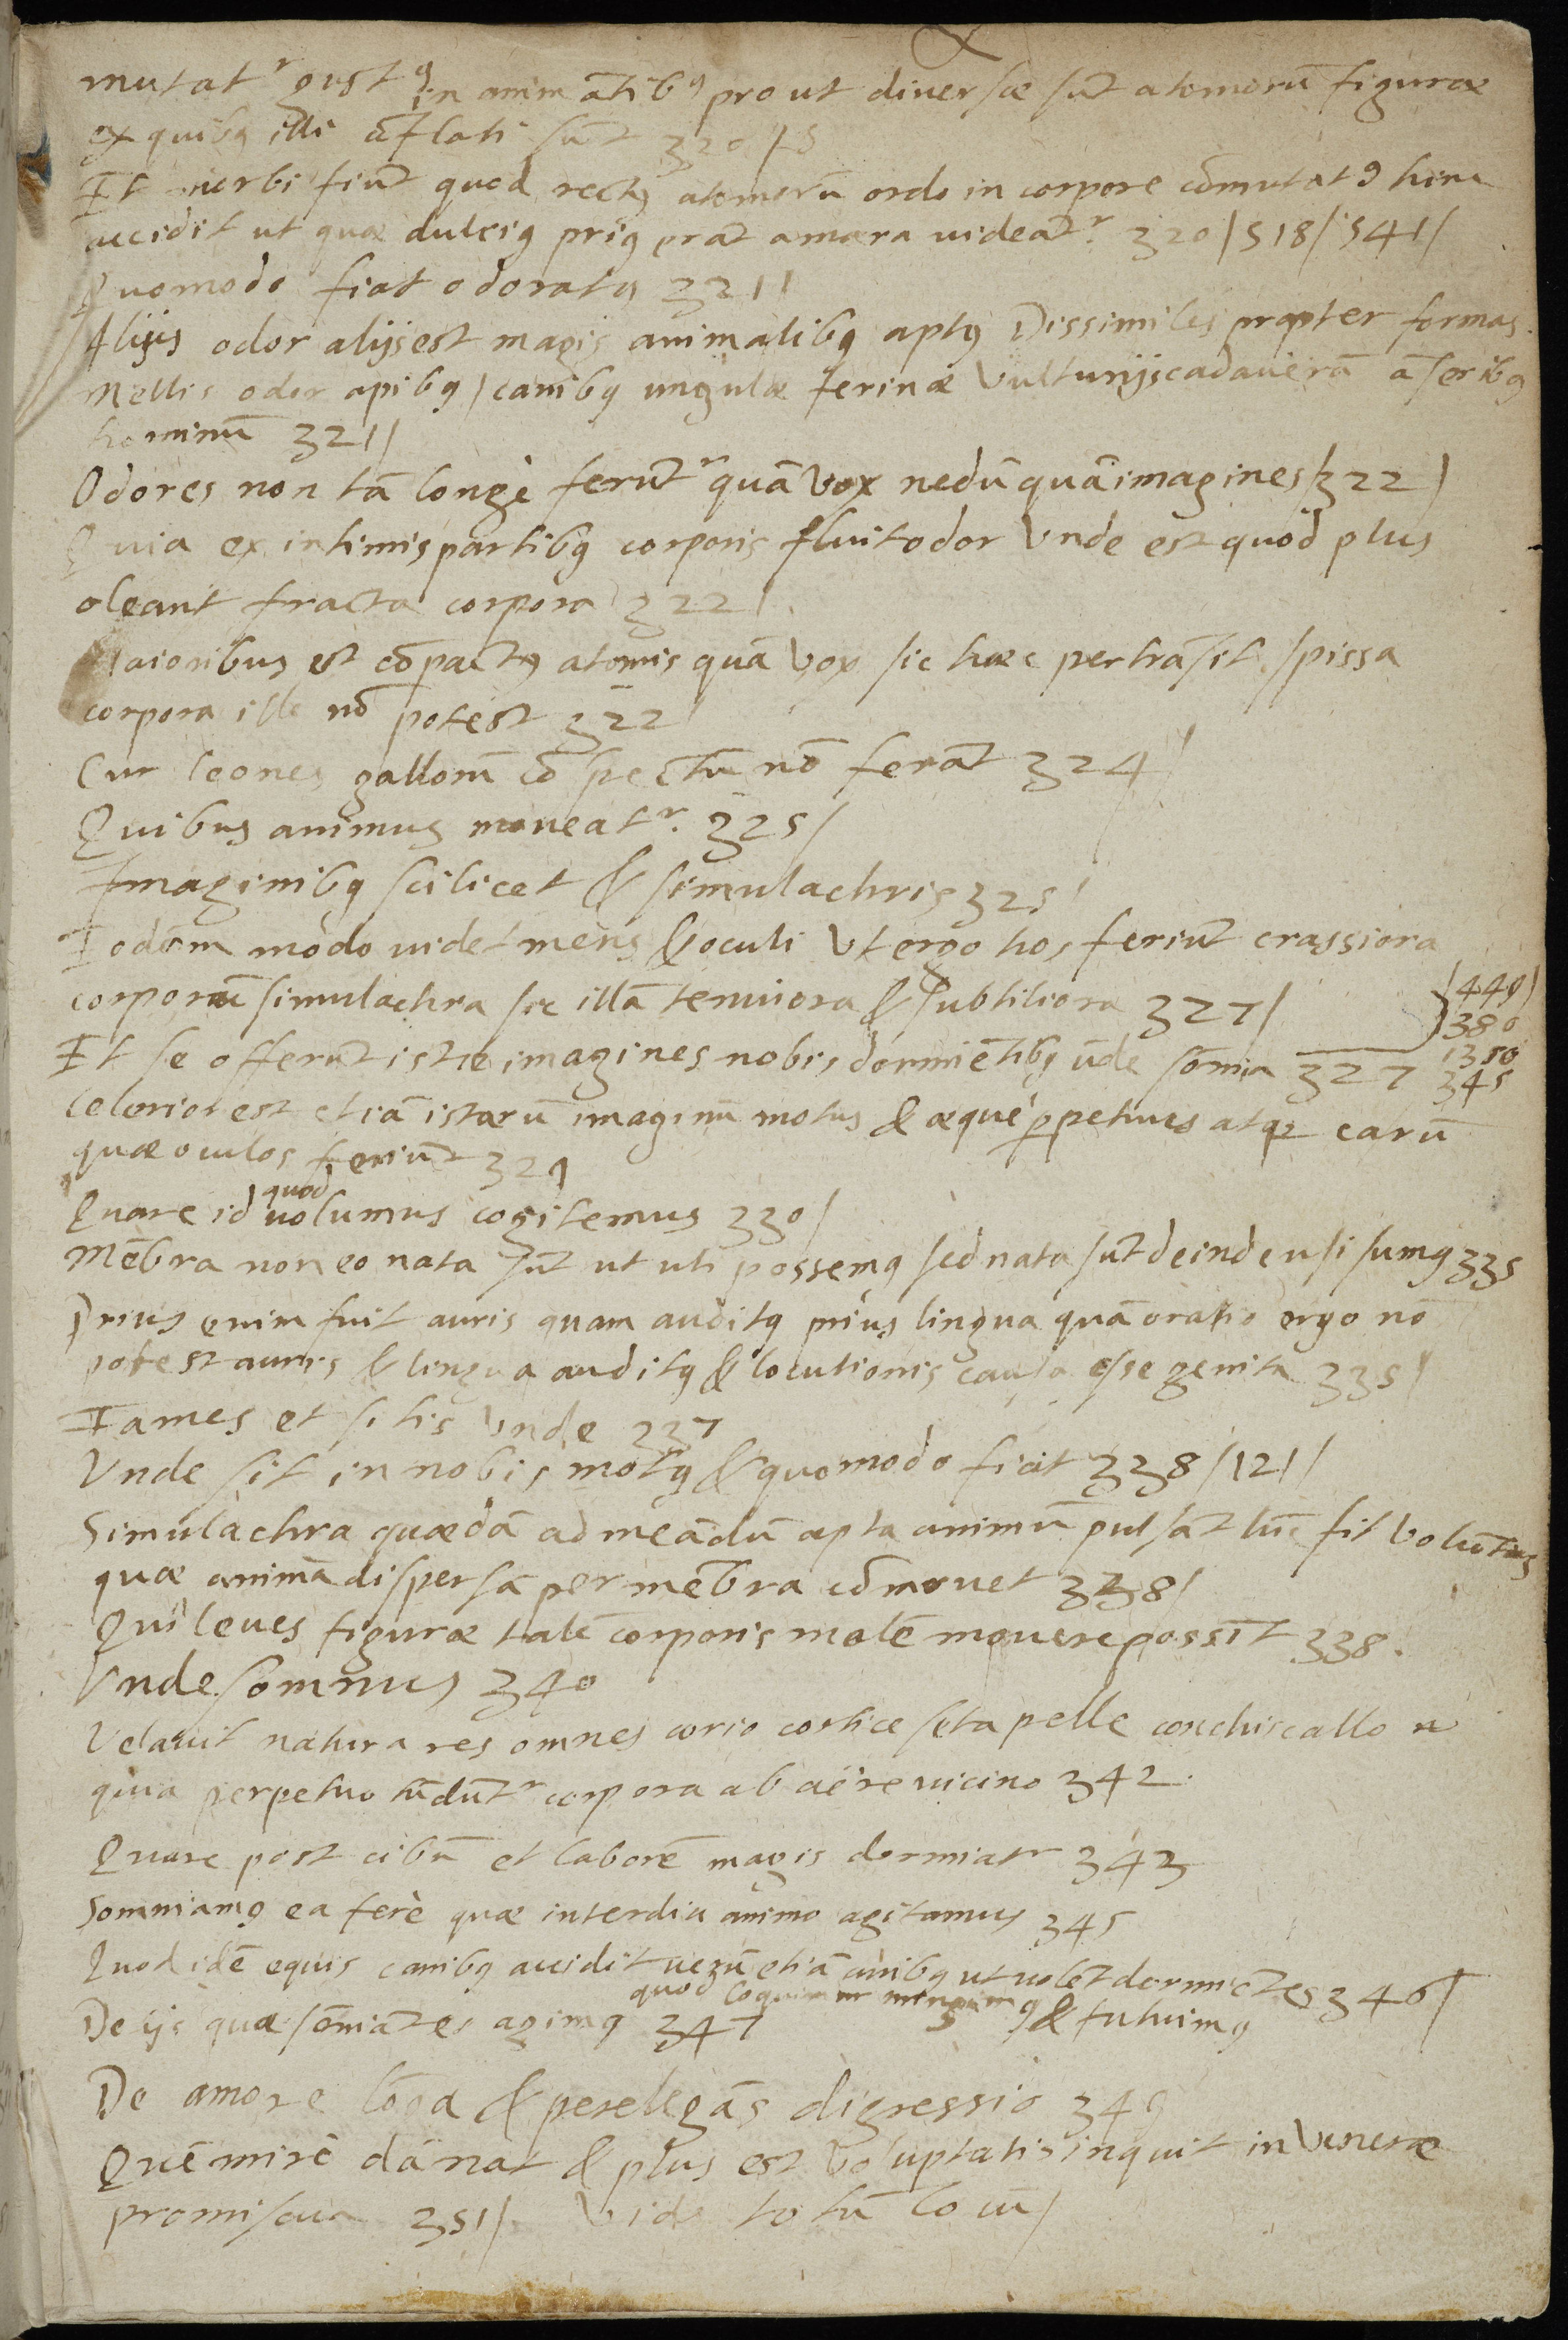 mutatʳ gustꝰ in animātibꝰ pro ut diuersæ sūt atomorū figuræ
ex quibꝰ illi cōflati sūt 320/5
Et morbi fiūt quod rectꝰ atomorū ordo in corpore cōmutatꝰ hinc
accidit ut quæ dulciꝰ priꝰ erāt amara uideātʳ. 320/518/541/
Quomodo fiat odoratꝰ 321/
Alijs odor alijs est magis animalibꝰ aptꝰ Dissimiles propter formas.
Mellis odor apibꝰ/canibꝰ ungulæ ferinæ Vulturijs cadauerā āseribꝰ
hominū 321/
Odores non tā longè ferūtʳ quā vox nedū quā imagines/322/
Quia ex intimis partibꝰ corporis fluit odor Vnde est quod plus
oleant fracta corpora 322/
Maioribus est cōpactꝰ atomis quā vox sic hæc pertrāsit spissa
corpora ille nō potest 322
Cur leones gallorū cōspectū nō ferāt 324/
Quibus animus moueatʳ. 325/
Imaginibꝰ scilicet & simulachris 325/
Eodem modo uidet mens & oculi Vt ergo hos feriūt crassiora
corporū simulachra sic illā tenuiora & subtiliora 327/ 449/
380
Et se offerūt istæ imagines nobis dormiētibꝰ ūde sōmia 327 1350
345
Celerior est etiā istarū imaginū motus & æquè ꝑpetuus atqꝫ earū
quæ oculos feriūt 329
Quare id quod uolumus cogitemus 330/
Mēbra non eo nata sūt ut uti possemꝰ sed nata sūt deinde usi sumꝰ 335
Prius enim fuit auris quam auditꝰ prius lingua quā oratio ergo nō
potest auris & lingua auditꝰ & locutionis causa esse genita 335/
Fames et sitis Vnde 337
Vnde sit in nobis motꝰ & quomodo fiat 338/121/
Simulachra quædā ad meādū apta animū pulsāt tūc fit volūtas
quæ animā dispersā per mēbra cōmouet 338/
Qui leues figuræ talē corporis molē mouere possīt 338.
Vnde somnus 340
Velauit natura res omnes corio cortice seta pelle conchis callo
quia perpetuo tūdūtʳ corpora ab aëre uicino 342.
Quare post cibū et laborē magis dormiatʳ 343
Somniamꝰ ea ferè quæ interdiu animo agitamus 345
Quod idē equis canibꝰ accidit uerū etiā auibꝰ ut uolēt dormiētes 346/
quod loquimur mingimꝰ & futuimꝰ
De ijs quæ sōniātes agimꝰ 347
De amore lōga & perelegās digressio 349
Quē mirè dānat & plus est voluptatis inquit in Venere
promiscua 351/ Vide totū locū/